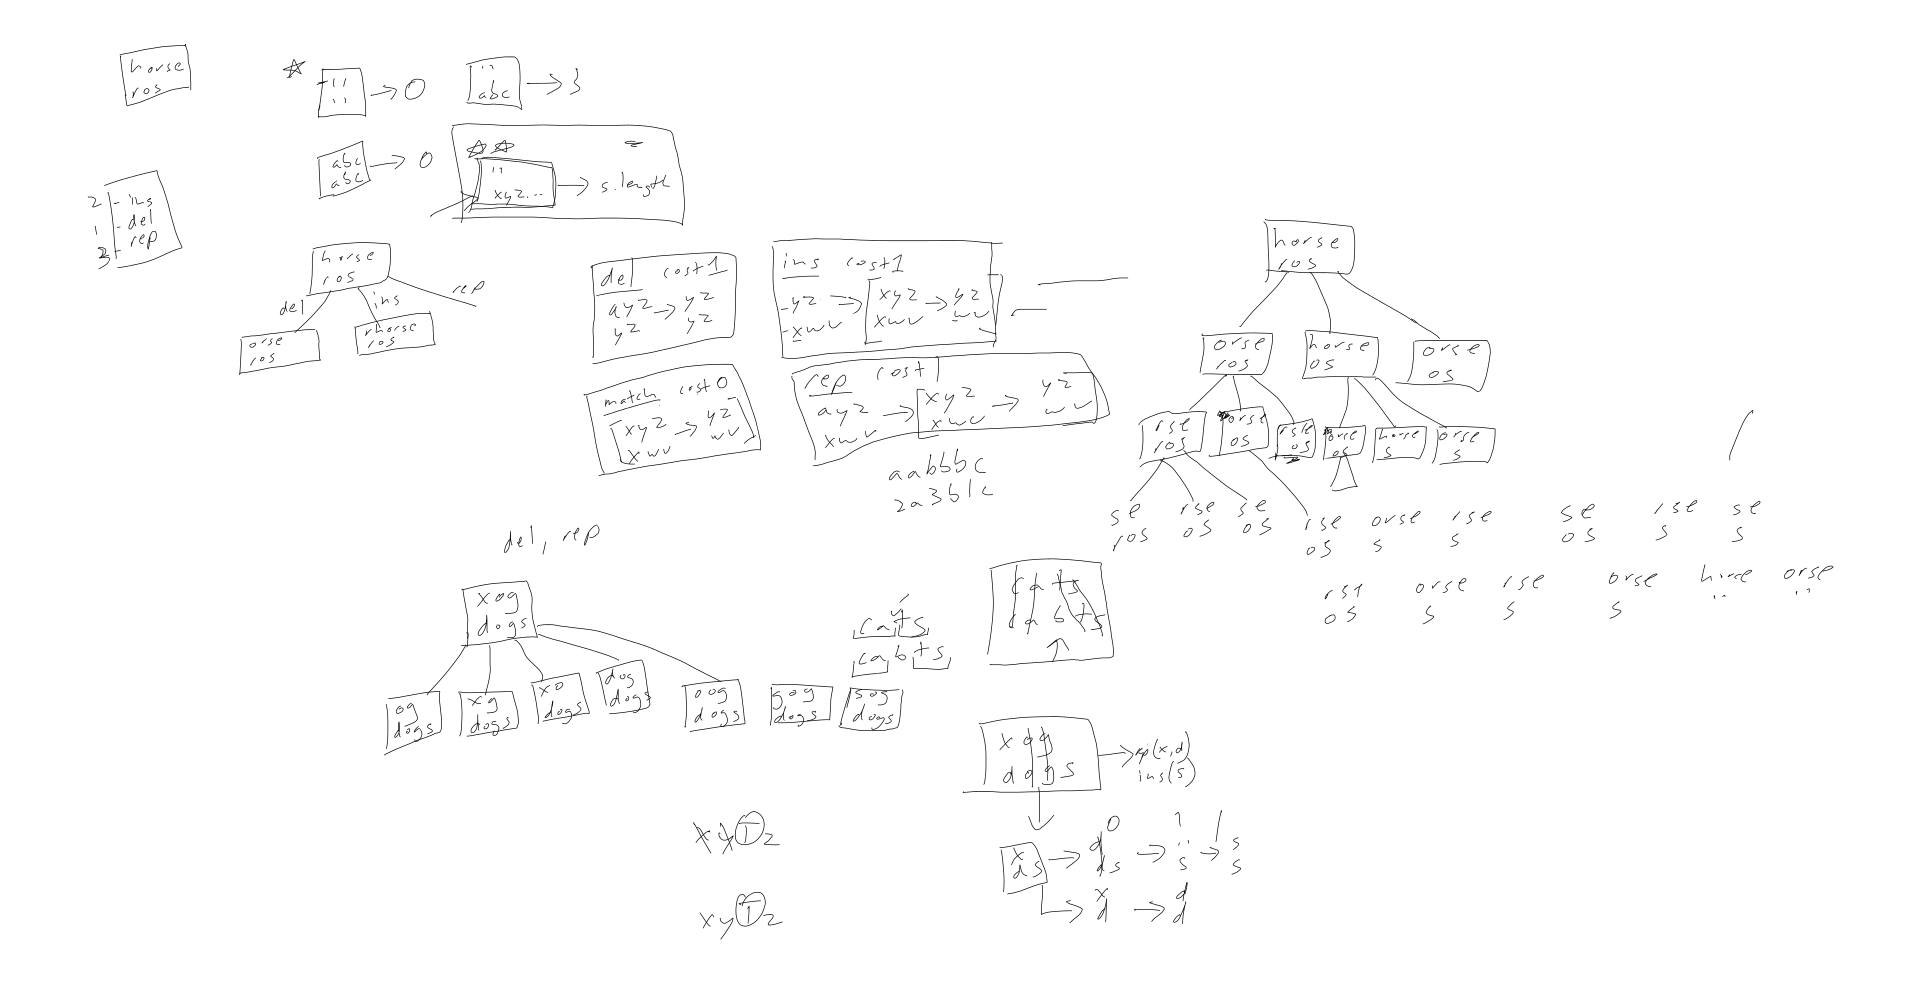 horse
ros
'' 
'' → 0
''
abc → 3
abc
abc → 0
''
xyz... → s.length
2 - ins
1 - del
3 - rep
horse
ros
del
ins
rep
orse
ros
rhorse
ros
del cost 1
ayz → yz
yz yz
ins cost 1
yz → xyz → yz
xwv xwv wv
match cost 0
xyz → yz
xwv wv
rep cost 1
ayz → xyz → yz
xwv xwv wv
aabbbc
2a3b1c
horse
ros
orse
ros
horse
os
orse
os
rse
ros
orse
os
rse
os
orse
os
horse
s
orse
s
se
ros
rse
os
se
os
rse
os
orse
s
rse
s
se
os
rse
s
se
s
os
orse
s
rse
s
orse
s
''
orse
''
del, rep
xog
dogs
og
dogs
xg
dogs
xo
dogs
dog
dogs
oog
dogs
gog
dogs
sog
dogs
cats
cabts
cats
cabts
xog
dogs
→ rep(x,d)
ins(s)
x
ds
→ d
ds
→ ''
s
→ s
s
0
1
→ x
d
→ d
d
xyTz
xyTz